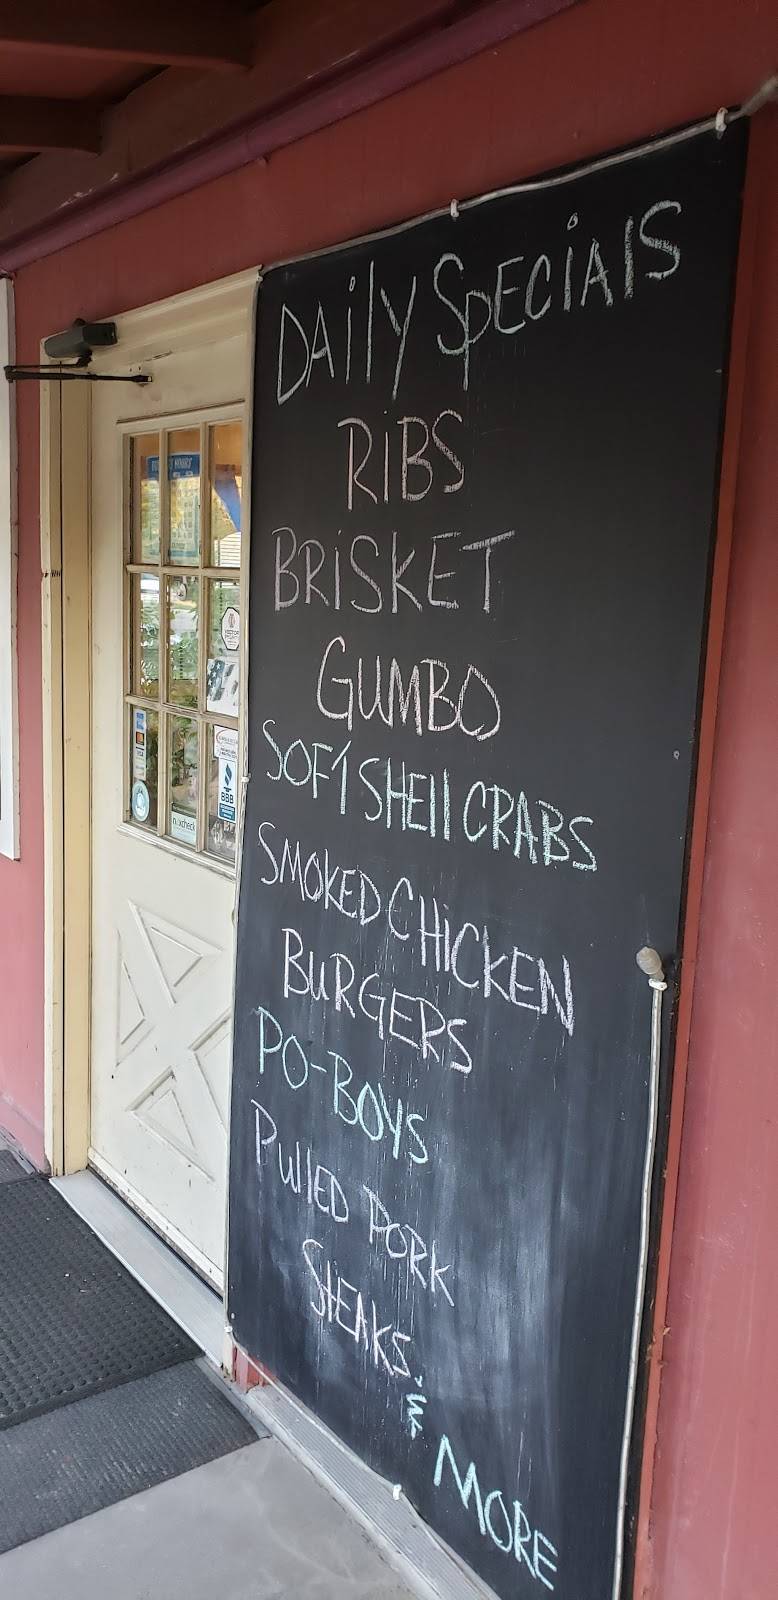 DAilY SPECiAlS
RiBS
BRiSKET
GUMBO
SOFT SHEll CRABS
SMOKED CHiCKEN
BURGERS
PO-BOYS
PUllED PORK
STEAKS
& MORE
BBB